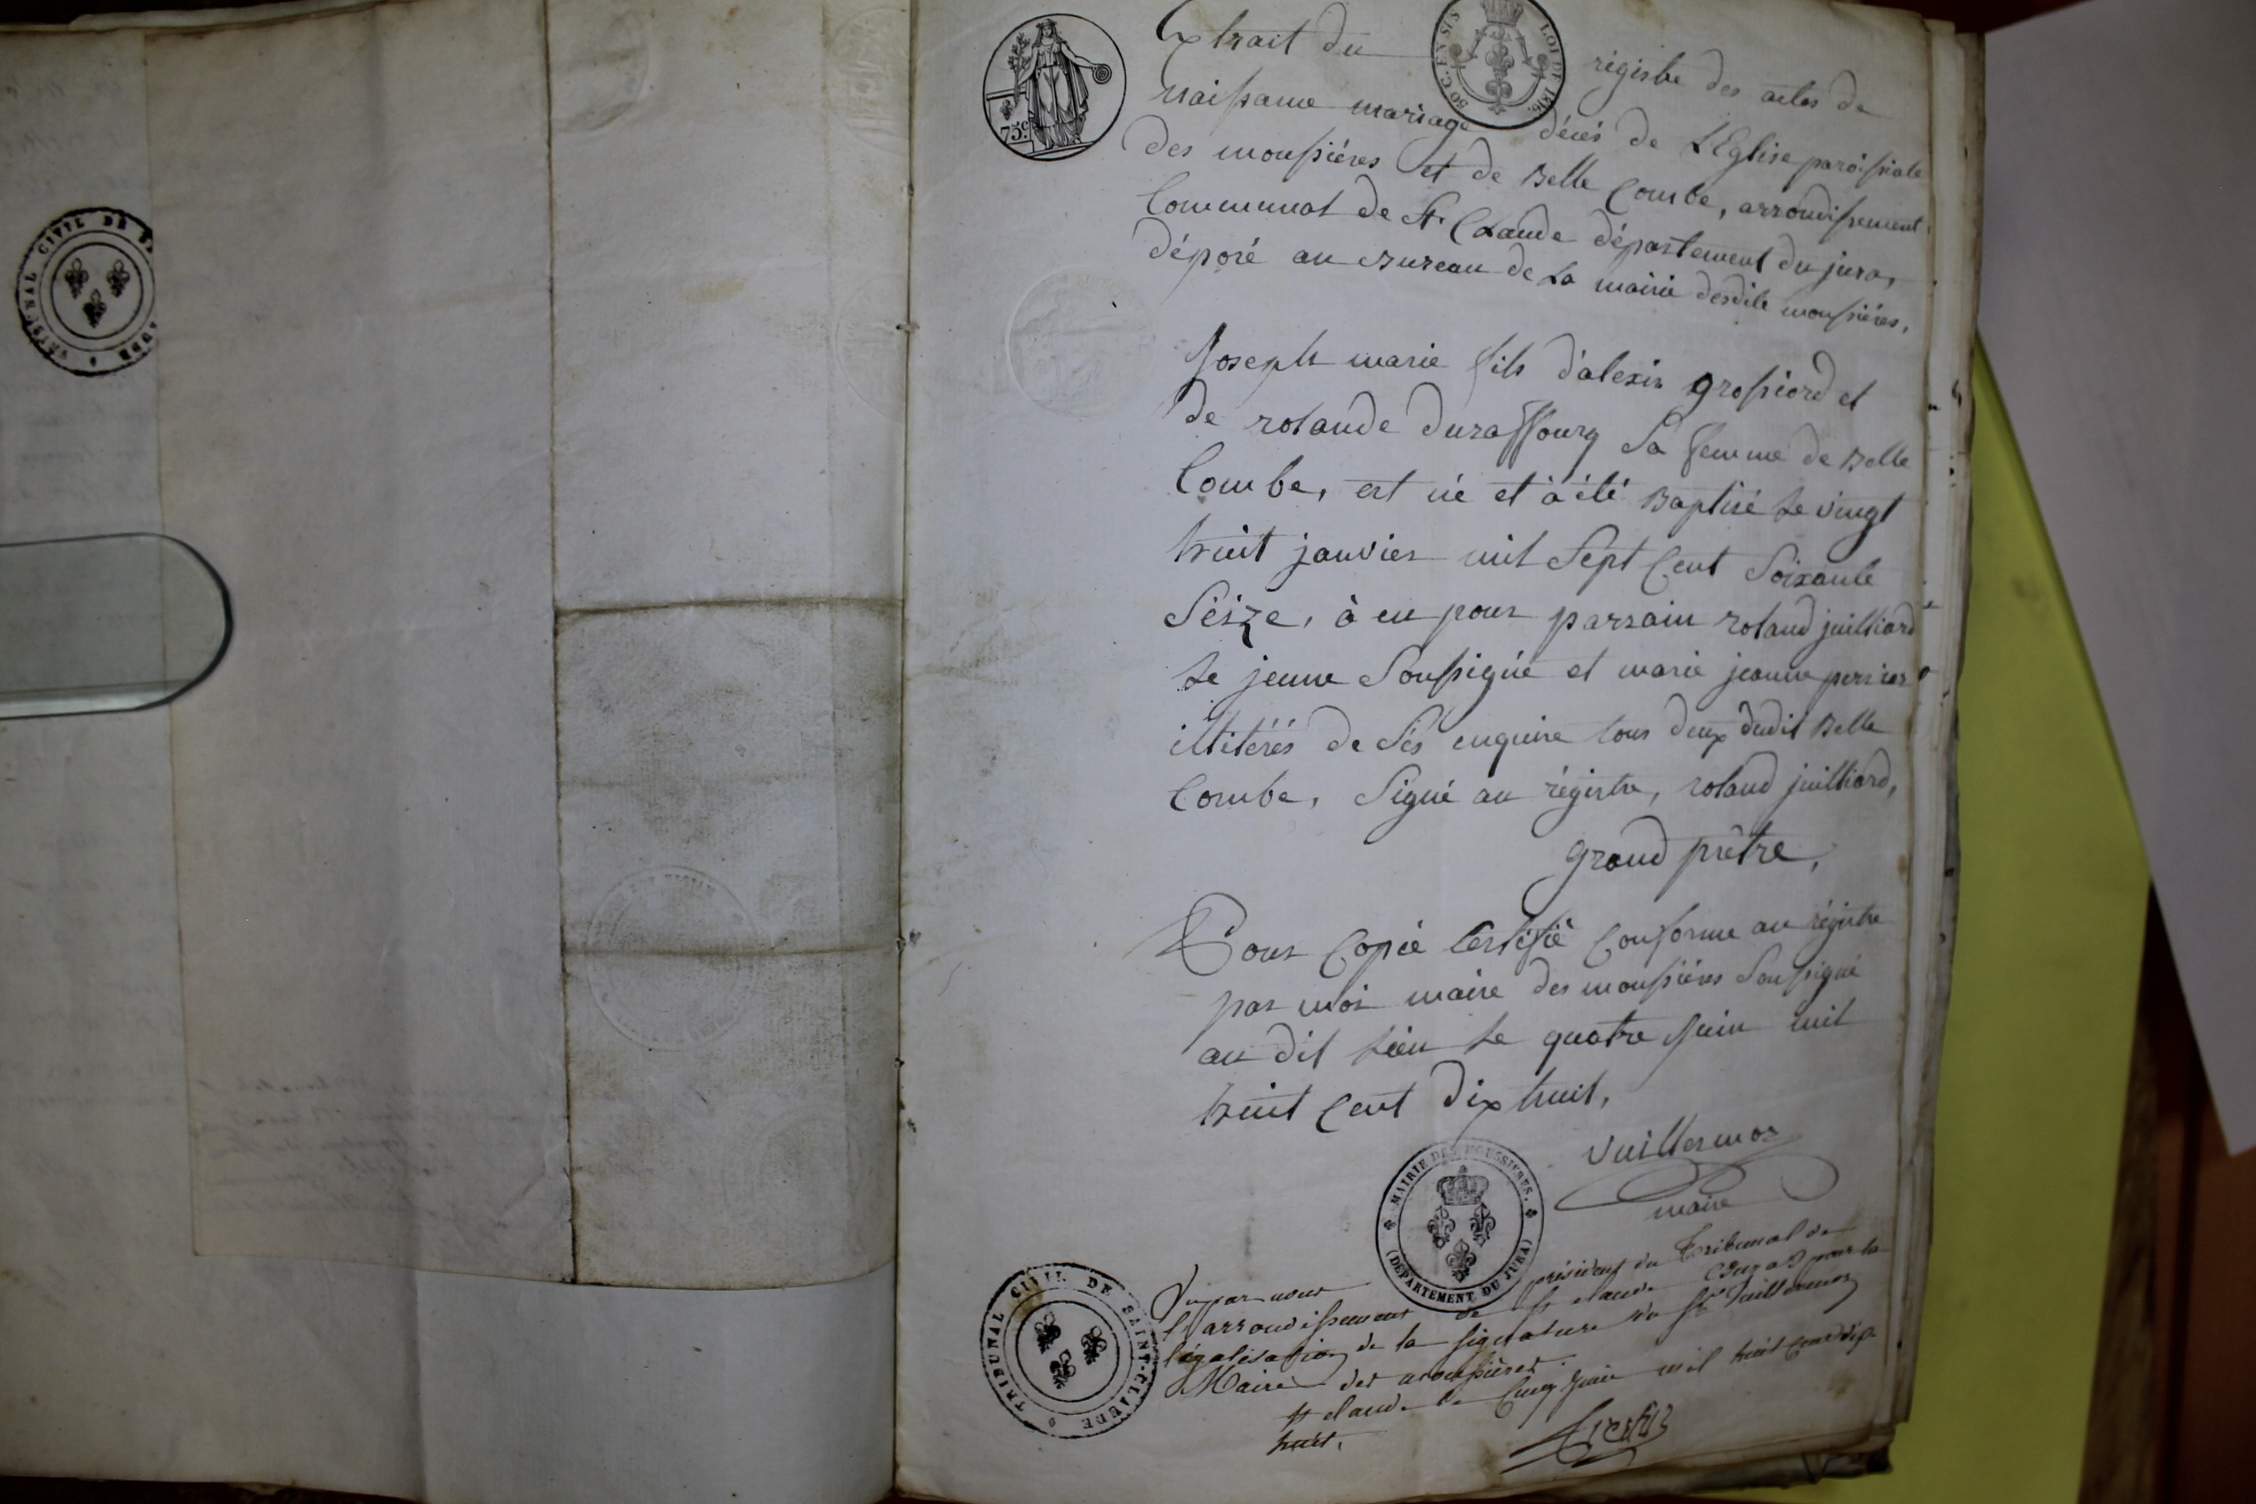 TRIBUNAL CIVIL DE
75.c
50 C. EN SUS LOI DE 1816.
Extrait du régistre des actes de
naissance mariage décés de L'Eglise paroissiale
des moussiéres et de Belle Combe, arrondissement
Communal de St Claude département du jura,
déposé au Bureau de La mairie desdite moussiéres,
Joseph marie fils d'alexis grossiord et
de rolande duraffourg Sa femme de Belle
Combe, est né et à été Baptisé Le vingt
huit janvier mil Sept Cent Soixante
Séize, à eu pour parrain roland juilliard
Le jeune Soussigné et marie jeanne perrier
illitérés de Sés enquire tous deux dudit Belle
Combe, Signé au régistre, roland juilliard,
grand prêtre,
Pour Copie Certifié Conforme au régistre
par moi maire des moussiéres Soussigné
au dit Lieu Le quatre Juin mil
huit Cent dix huit,
Vuillermoz
maire
MAIRIE DES MOUSSIERES.
(DÉPARTEMENT DU JURA)
TRIBUNAL CIVIL DE SAINT-CLAUDE
Vu par nous président du Tribunal de
l'arrondissement de St claude Jura pour la
légalisation de la signature du Sr Vuillermoz
Maire des moussières.
St claude le Cinq Juin mil huit Cent dix
huit.